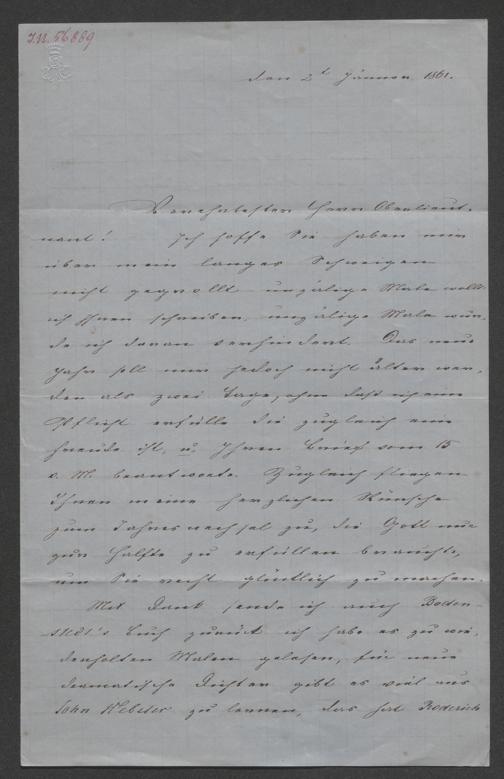 I.N. 56889
den 2t Jänner 1861.
Verehrtester Herr Oberlieut-
nant! Ich hoffe Sie haben mir
über mein langes Schweigen
nicht gegrollt unzälige Male wollt
ich Ihnen schreiben, unzälige Male wur-
de ich daran verhindert. Das neue
Jahr soll nun jedoch nicht älter wer-
den als zwei Tage, ohne daß ich eine
Pflicht erfülle die zugleich eine
Freude ist, u. Ihren Brief vom 15
v. M. beantworte. Zugleich fliegen
Ihnen meine herzlichen Wünsche
zum Jahreswechsel zu, die Gott nur
zur Hälfte zu erfüllen brauchte,
um Sie recht glücklich zu machen.
Mit Dank sende ich auch Boden-
stedt's Buch zurück ich habe es zu wie-
derholten Malen gelesen, für neue
dramatische Dichter gibt es viel aus
John Webster zu lernen, das hat Roderich